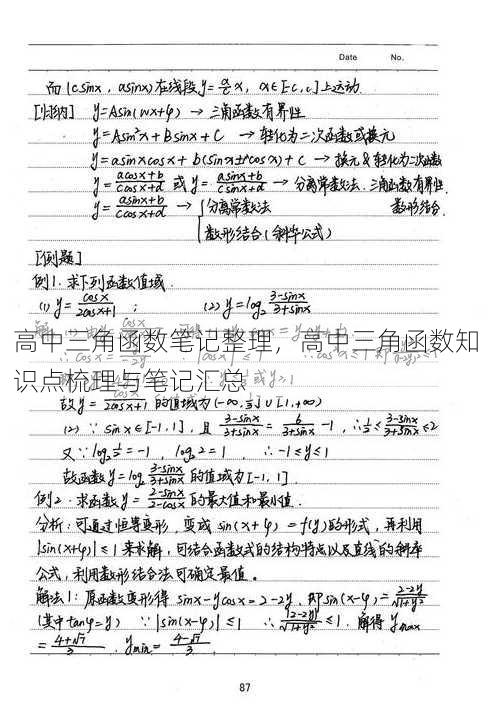 Date No.
而 (csinx, asinx)在线段 y=a/c x, x∈[-c,c]上运动
[归纳] y=Asin(wx+φ) → 三角函数有界性
y=Asin²x+Bsinx+C → 转化为二次函数或换元
y=asinxcosx+b(sinx±cosx)+c → 换元&转化为二次函数
y=(acosx+b)/(ccosx+d) 或 y=(asinx+b)/(csinx+d) → 分离常数法、三角函数有界性
y=(asinx+b)/(ccosx+d) → 分离常数法 数形结合
数形结合(斜率公式)
[例题]
例1. 求下列函数值域.
(1) y=cosx/(2cosx+1); (2) y=log₂(3-sinx)/(3+sinx)
高中三角函数笔记整理，高中三角函数知
识点梳理与笔记汇总
故y=cosx/(2cosx+1)的值域为(-∞,1/3]∪[1,+∞)
(2) ∵ sinx∈[-1,1], 且 (3-sinx)/(3+sinx)=6/(3+sinx)-1, ∴1/2≤(3-sinx)/(3+sinx)≤2
又∵log₂1/2=-1, log₂2=1 ∴-1≤y≤1
故函数y=log₂(3-sinx)/(3+sinx)的值域为[-1,1]
例2. 求函数y=(2-sinx)/(2-cosx)的最大值和最小值.
分析：可通过恒等变形，变成sin(x+φ)=f(y)的形式，再利用
|sin(x+φ)|≤1来求解，可结合函数式的结构特点以及直线的斜率
公式，利用数形结合法可确定最值。
解法1: 原函数变形得 sinx-ycosx=2-2y, 即sin(x-φ)=(2-2y)/√(1+y²)
(其中tanφ=y) ∵|sin(x-φ)|≤1 ∴|2-2y|/√(1+y²)≤1. 解得 ymax
=(4+√7)/3, ymin=(4-√7)/3.
87